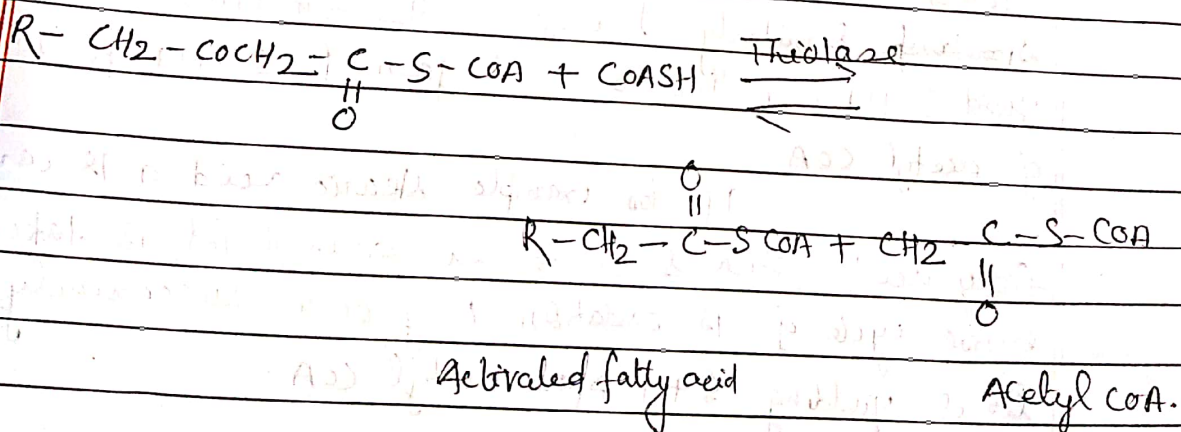 R- CH2 - COCH2 - C - S - COA + COASH Thiolase
||
O
O
||
R - CH2 - C - S COA + CH2 C - S - COA
||
O
Activated fatty acid Acetyl COA.